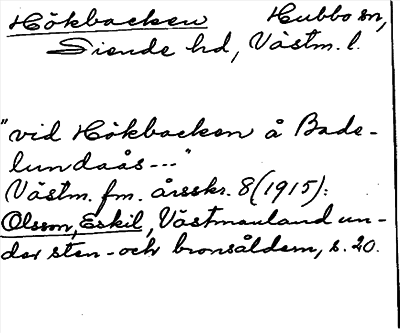 Hökbacken Hubbo sn,
Siende hd, Västm. l.
"vid Hökbacken å Bade-
lundaås---"
Västm. fm. årsskr. 8 (1915):
Olsson, Eskil, Västmanland un-
der sten- och bronsåldern, s. 20.